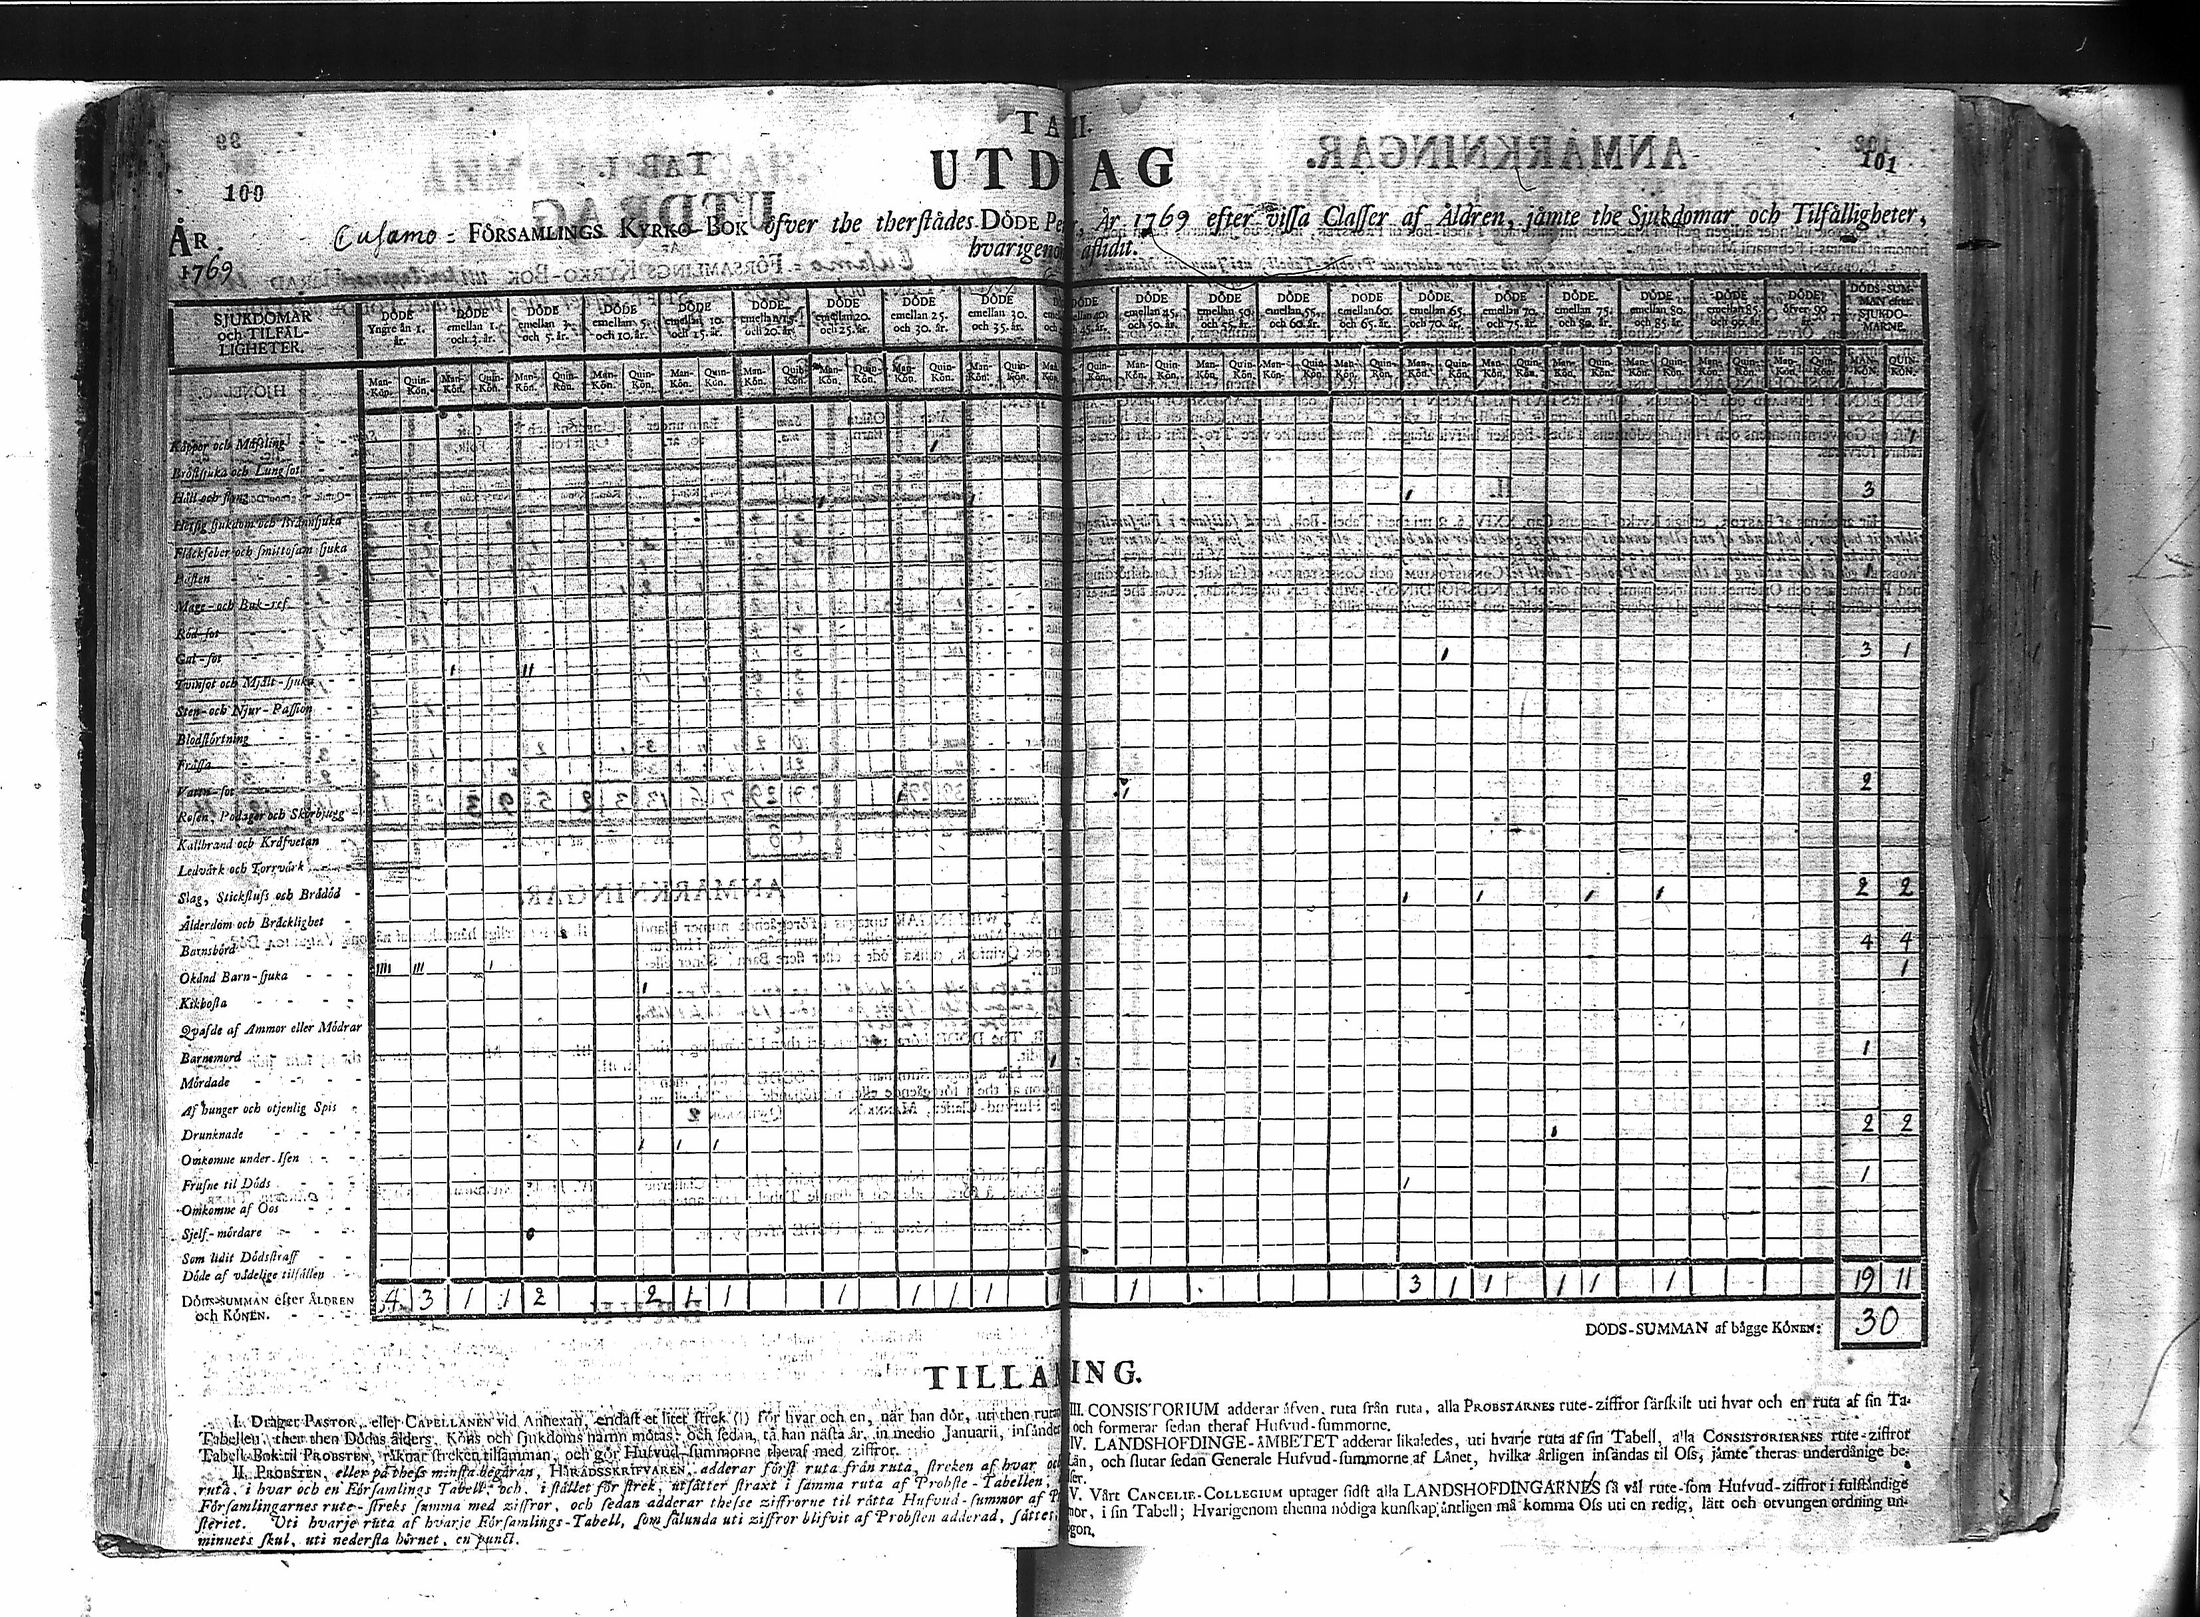 100
101
TA II.
UTD AG
ÅR
1769
Cusamo = FÖRSAMLINGS KYRKO-BOK öfver the therstädes DÖDE Pe , År 1769 efter vissa Classer af Åldren, jämte the Sjukdomar och Tilfälligheter,
hvarigeno aflidit.
SJUKDOMAR och TILFÄL-LIGHETER.
DÖDE Yngre än 1. år.
DÖDE emellan 1. och 3. år.
DÖDE emellan 3. och 5. år.
DÖDE emellan 5. och 10. år.
DÖDE emellan 10. och 15. år.
DÖDE emellan 15. och 20. år.
DÖDE emellan 20. och 25. år.
DÖDE emellan 25. och 30. år.
DÖDE emellan 30. och 35. år.
DÖDE emellan 45. och 50. år.
DÖDE emellan 50. och 55. år.
DÖDE emellan 55. och 60. år.
DÖDE emellan 60. och 65. år.
DÖDE emellan 65. och 70. år.
DÖDE emellan 70. och 75. år.
DÖDE emellan 75. och 80. år.
DÖDE emellan 80. och 85. år.
DÖDE emellan 85. och 90. år.
DÖDE öfver 90 år.
DÖDS-SUMMAN efter SJUKDOMARNE.
Man-Kön. Quin-Kön.
Kåppor och Mässling 1 1
Bröstsjuka och Lungsot
Håll och styng 1 1 1 3
Hetsig sjukdom och Brännsjuka
Fläckfeber och smittosam sjuka
Pästen 1
Mage- och Buk-ref
Röd-sot
Gul-sot 1 3 1
Tvinsot och Mjält-sjuka 1 11
Sten- och Njur-Passion
Blodstörtning
Frässa
Vattu-sot 1 2
Rosen, Podager och Skörbjugg
Kallbrand och Kräfvetan
Ledvärk och Torrvärk
Slag, Stickfluss och Brådöd 1 1 1 1 2 2
Ålderdom och Bräcklighet
Barnsbörd 4 4
Okänd Barn-sjuka 1111 111 1 1
Kikhosta 1
Qvafde af Ammor eller Mödrar
Barnemord 1 1
Mördade
Af hunger och otjenlig Spis
Drunknade 1 1 1 1 2 2
Omkomne under Isen
Frusne til Döds 1 1
Omkomne af Oos
Sjelf-mördare
Som lidit Dödsstraff
Döde af vådelige tilfällen
DÖDS-SUMMAN efter ÅLDREN och KÖNEN. 4 3 1 1 2 2 1 1 1 1 1 1 1 3 1 1 1 1 1 19 11
DÖDS-SUMMAN af bägge KÖNEN: 30
TILLÄ ING.
I. Drager PASTOR, eller CAPELLANEN vid Annexan, endast et litet strek (1) för hvar och en, när han dör, uti then ruta
Tabellen, ther then Dödas ålders, Köns och sjukdoms namn mötas; och sedan, tå han nästa år, in medio Januarii, insände
Tabell-Bok til PROBSTEN, räknar streken tilsamman, och gör Hufvud-summorne theraf med ziffror.
II. PROBSTEN, eller på thess minsta begäran, HÄRADSSKRIFVAREN, adderar först ruta från ruta, streken af hvar oc
ruta, i hvar och en Församlings Tabell, och, i stället för strek, utsätter straxt i samma ruta af Probste-Tabellen,
Församlingarnes rute-streks summa med ziffror, och sedan adderar thesse ziffrorne til rätta Hufvud-summor af P
steriet. Uti hvarje ruta af hvarje Församlings-Tabell, som sålunda uti ziffror blifvit af Probsten adderad, sätter
minnets skul, uti nedersta hörnet, en punct.
III. CONSISTORIUM adderar äfven, ruta från ruta, alla PROBSTARNES rute-ziffror särskilt uti hvar och en ruta af sin Ta-
och formerar sedan theraf Hufvud-summorne.
IV. LANDSHOFDINGE-ÄMBETET adderar likaledes, uti hvarje ruta af sin Tabell, alla CONSISTORIERNES rute-ziffror
Län, och slutar sedan Generale Hufvud-summorne af Länet, hvilka årligen insändas til Oss, jämte theras underdånige be-
V. Vårt CANCELIE-COLLEGIUM uptager sidst alla LANDSHOFDINGARNES så väl rute-som Hufvud-ziffror i fulständige
nor, i sin Tabell; Hvarigenom thenna nödiga kunskap äntligen må komma Oss uti en redig, lätt och otvungen ordning un-
gon.